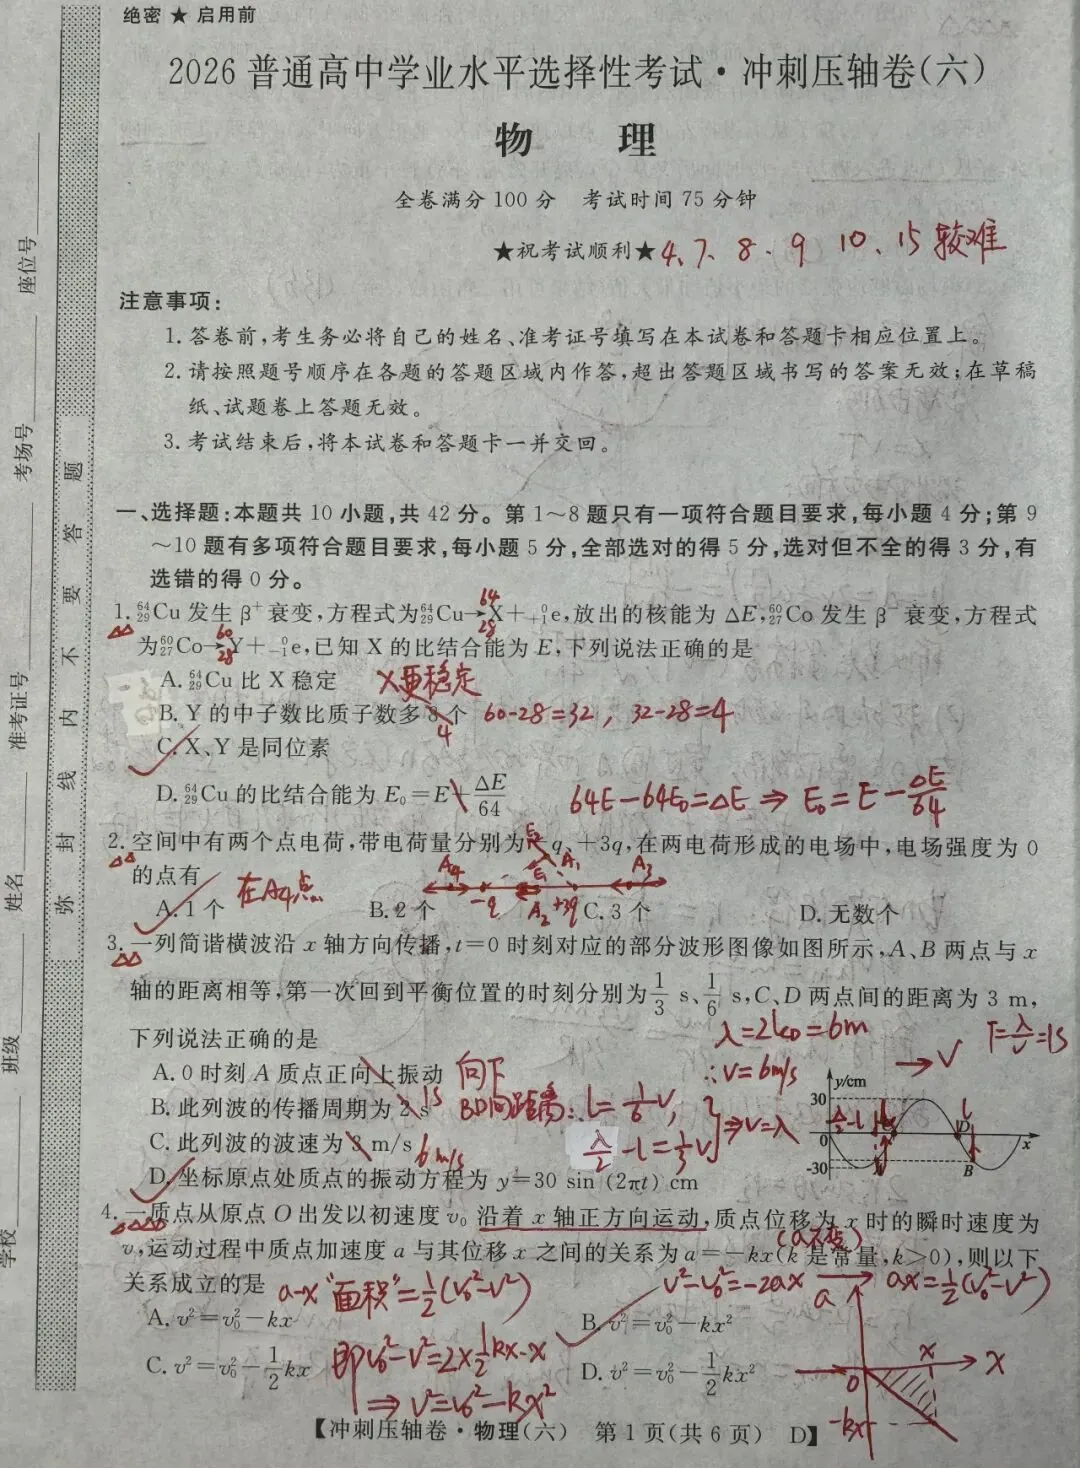 绝密 ★ 启用前
2026 普通高中学业水平选择性考试·冲刺压轴卷(六)
物 理
全卷满分 100 分 考试时间 75 分钟
★祝考试顺利★ 4、7、8、9 10、15 较难
注意事项:
1. 答卷前,考生务必将自己的姓名、准考证号填写在本试卷和答题卡相应位置上。
2. 请按照题号顺序在各题的答题区域内作答,超出答题区域书写的答案无效;在草稿
纸、试题卷上答题无效。
3. 考试结束后,将本试卷和答题卡一并交回。
一、选择题:本题共 10 小题,共 42 分。第 1~8 题只有一项符合题目要求,每小题 4 分;第 9
~10 题有多项符合题目要求,每小题 5 分,全部选对的得 5 分,选对但不全的得 3 分,有
选错的得 0 分。
1. ⁶⁴₂₉Cu 发生 β⁺ 衰变,方程式为⁶⁴₂₉Cu→⁶⁴₂₈X+⁰₊₁e,放出的核能为 ΔE;⁶⁰₂₇Co 发生 β⁻ 衰变,方程式
为⁶⁰₂₇Co→⁶⁰₂₈Y+⁰₋₁e,已知 X 的比结合能为 E,下列说法正确的是
A. ⁶⁴₂₉Cu 比 X 稳定 X更稳定
B. Y 的中子数比质子数多 8 个 4 60-28=32, 32-28=4
C. X、Y 是同位素
D. ⁶⁴₂₉Cu 的比结合能为 E₀=E+ΔE/64 64E-64E₀=ΔE ⇒ E₀=E-ΔE/64
2. 空间中有两个点电荷,带电荷量分别为-q、+3q,在两电荷形成的电场中,电场强度为 0
的点有 在A4点 A4 -q E2 E1 A1 A2 +3q A3
A. 1 个 B. 2 个 C. 3 个 D. 无数个
3. 一列简谐横波沿 x 轴方向传播,t=0 时刻对应的部分波形图像如图所示,A、B 两点与 x
轴的距离相等,第一次回到平衡位置的时刻分别为1/3 s、1/6 s,C、D 两点间的距离为 3 m,
下列说法正确的是 λ=2l_CD=6m → v T=λ/v=1s
A. 0 时刻 A 质点正向上振动 向下 ∴v=6m/s
B. 此列波的传播周期为 2 s 1s BD间距离:l=1/6v,
C. 此列波的波速为 3 m/s 6m/s λ/2-l=1/3v ⇒v=λ
D. 坐标原点处质点的振动方程为 y=30 sin (2πt) cm
y/cm
30
0
-30
λ/2-l
l
D
B
x
4. 一质点从原点 O 出发以初速度 v₀ 沿着 x 轴正方向运动,质点位移为 x 时的瞬时速度为
v,运动过程中质点加速度 a 与其位移 x 之间的关系为 a=-kx(k 是常量,k>0),则以下
关系成立的是 a-x"面积"=1/2(v₀²-v²) v²-v₀²=-2ax → ax=1/2(v₀²-v²)
A. v²=v₀²-kx B. v²=v₀²-kx²
C. v²=v₀²-1/2kx D. v²=v₀²-1/2kx²
即v₀²-v²=2×1/2kx·x
⇒v²=v₀²-kx²
a
x
X
0
-kx
【冲刺压轴卷·物理(六) 第 1 页(共 6 页) D】
学校
班级
姓名
准考证号
考场号
座位号
弥 封 线 内 不 要 答 题